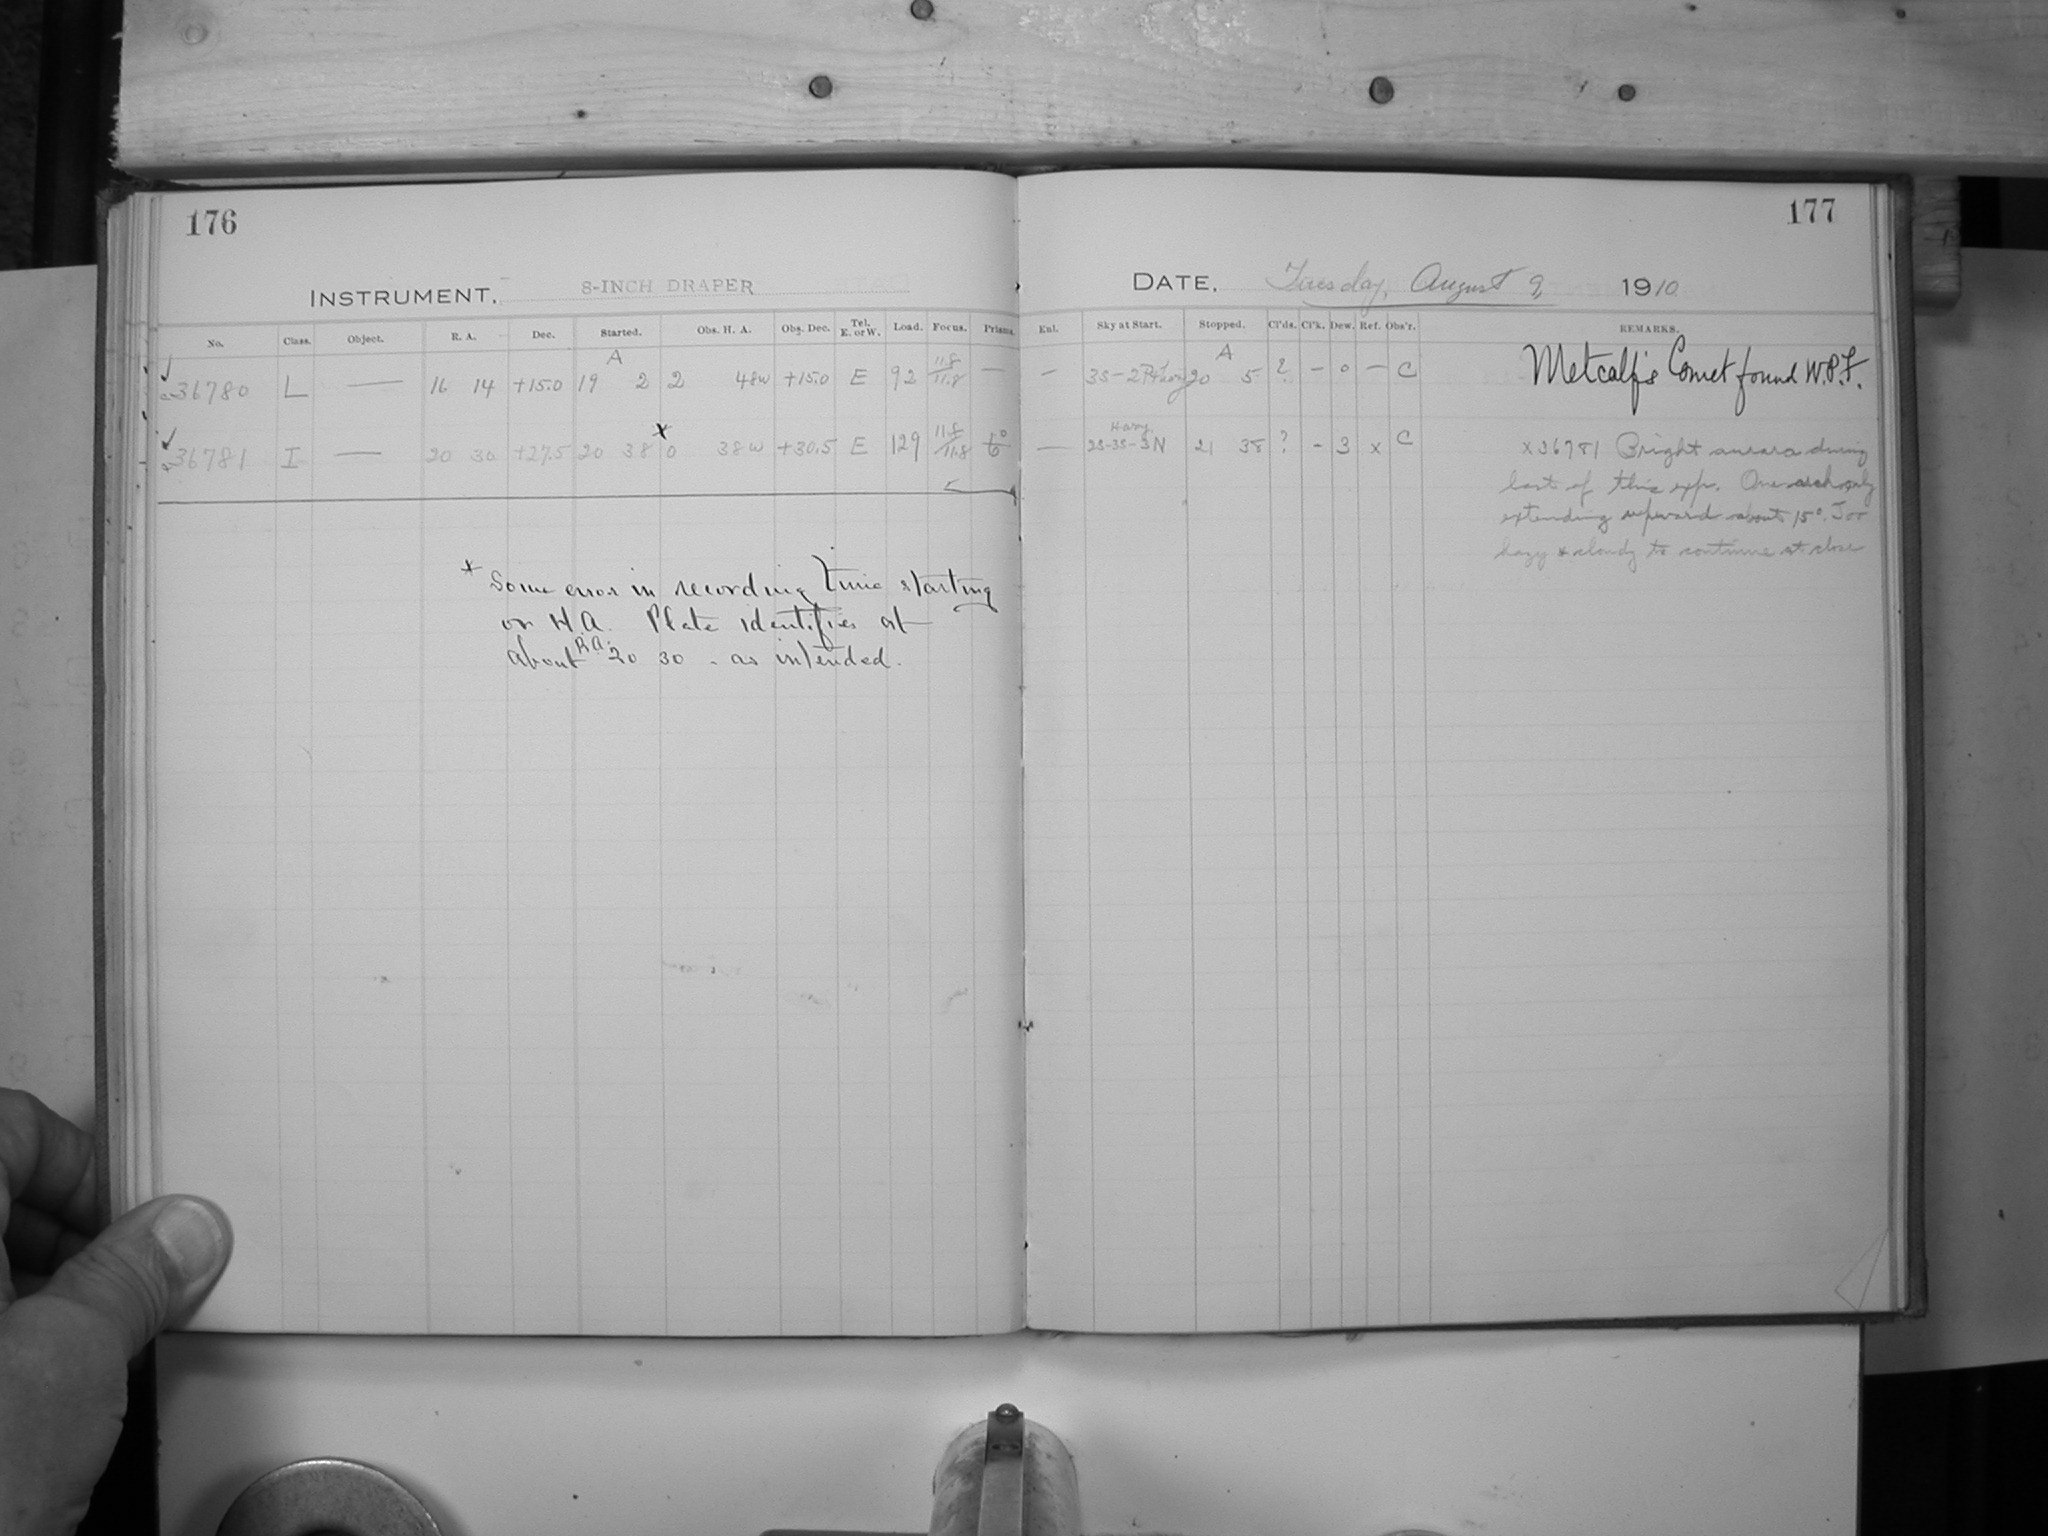 176
INSTRUMENT. 8-INCH DRAPER
No. Class. Object. R. A. Dec. Started. Obs. H. A. Obs. Dec. Tel. E. or W. Load. Focus. Prisms.
A
36780 L — 16 14 +15.0 19 2 2 48w +15.0 E 92 11.8/11.8 —
36781 I — 20 30 +27.5 20 38 x 0 38w +30.5 E 129 11.8/11.8 6°
* Some error in recording time starting
or H.A. Plate identifies at
about R.A. 20 30 - as intended.
177
DATE. Tuesday, August 9, 1910
Enl. Sky at Start. Stopped. Cl'ds. Cl'k. Dew. Ref. Obs'r. REMARKS.
A
— 3S-2 20 5 ? - 0 - C Metcalf's Comet found W.P.F.
Hazy
— 2S-3S-3N 21 38 ? - 3 x C x36781 Bright aurora during
last of this exp. One arch only
extending upward about 15°. Too
hazy & cloudy to continue at close